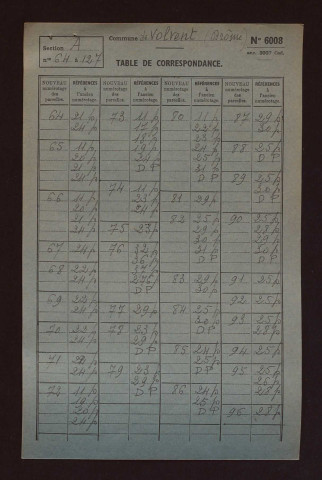 Section A
nos 64 à 127
Commune de Volvent Drôme
N° 6008
TABLE DE CORRESPONDANCE.
NOUVEAU numérotage des parcelles. RÉFÉRENCES à l'ancien numérotage. NOUVEAU numérotage des parcelles. RÉFÉRENCES à l'ancien numérotage. NOUVEAU numérotage des parcelles. RÉFÉRENCES à l'ancien numérotage. NOUVEAU numérotage des parcelles. RÉFÉRENCES à l'ancien numérotage.
64 21 p
24 p
65 11 p
20 p
21 p
24 p
66 11 p
21 p
24 p
67 24 p
68 22 p
24 p
69 23 p
24 p
70
24 p
71
24 p
72 11 p
24 p
73 11 p
17 p
18 p
19 p
D P
74 11 p
23 p
24 p
75 23 p
76 32 p
36 p
37 p
D P
77 29 p
78 23 p
29 p
D P
79 23 p
29 p
D P
80 11 p
23 p
24 p
25 p
31 p
D P
81 29 p
82 25 p
29 p
30 p
31 p
D P
83 29 p
30 p
84 25 p
30 p
D P
85 24 p
25 p
D P
86 24 p
25 p
D P
87 29 p
30 p
88 25 p
D P
89 25 p
30 p
D P
90 25 p
28 p
29 p
30 p
91 25 p
92 25 p
93 25 p
28 p
94 25 p
95 25 p
28 p
96 28 p